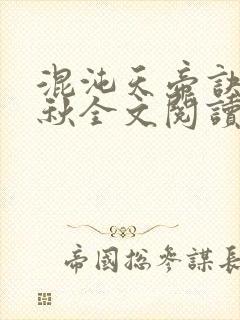 混沌天帝訣
秋全文閱讀
帝國總參謀長